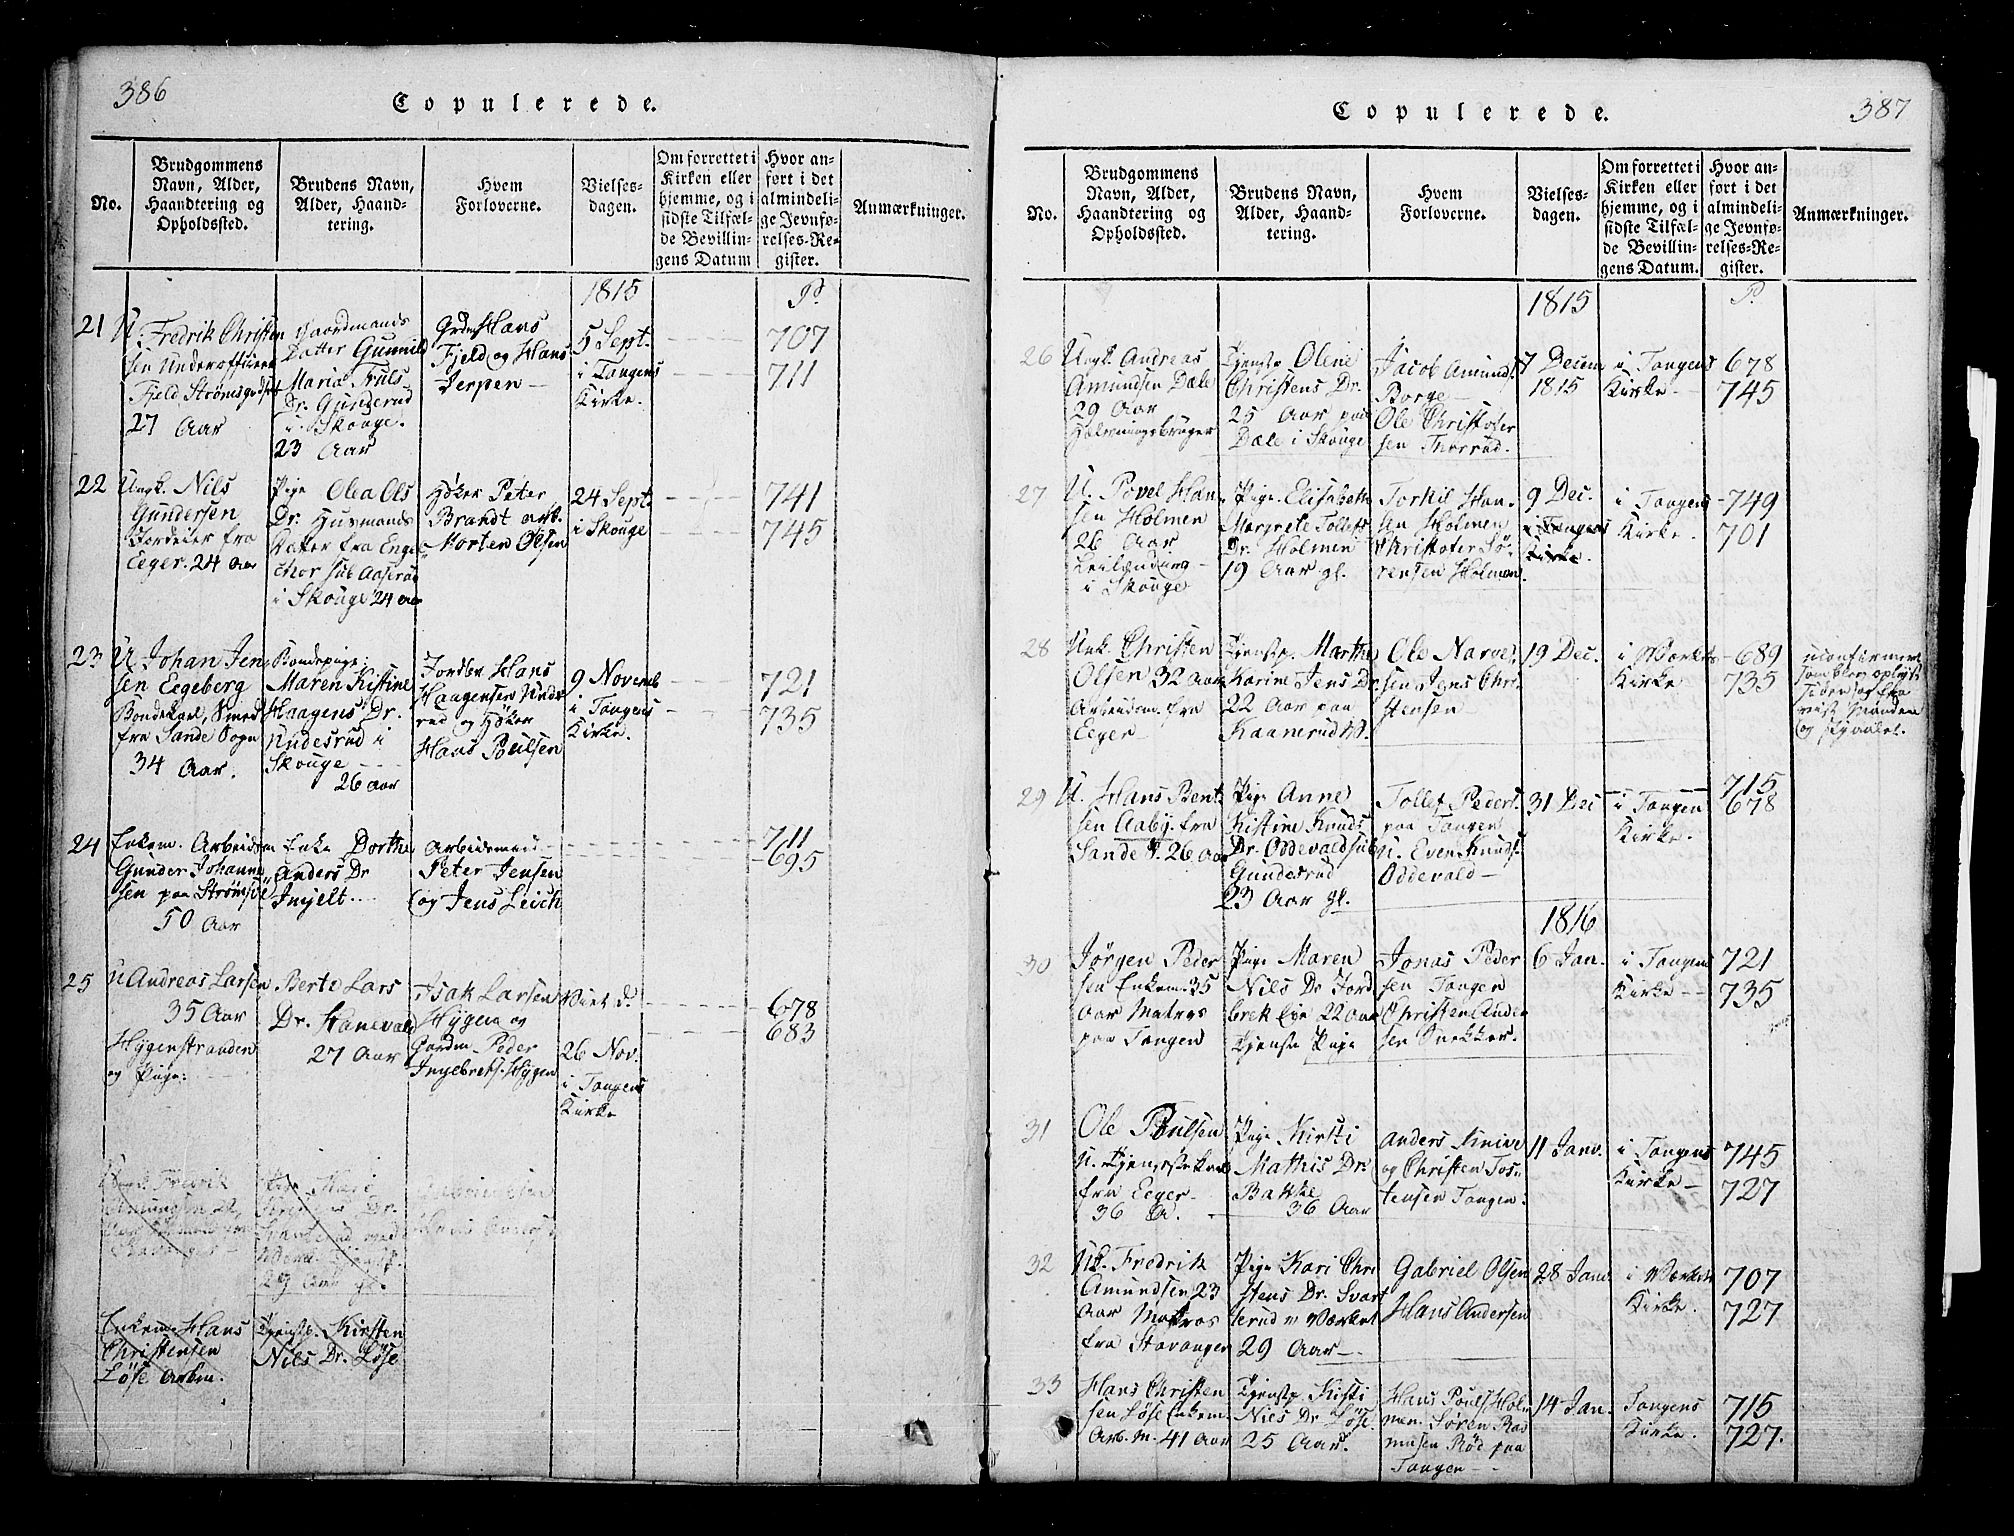 386
Copulerede.
No.
Brudgommens
Navn, Alder,
Haandtering og
Opholdssted.
Brudens Navn,
Alder, Haand-
tering.
Hvem
Forloverne.
Vielses-
dagen.
Om forrettet i
Kirken eller
hjemme, og i
sidste Tilfæl-
de Bevillin-
gens Datum
Hvor an-
ført i det
almindeli-
ge Jevnfø-
relses-Re-
gister.
Anmærkninger.
1815
21
U. Fredrik Christen
sen Underofficer
Fjeld Strømsgodset
27 Aar
Gaardmands
Datter Gunnild
Maria Truls
Dr. Gunderud
i Skouge.
23 Aar
Hans
Fjeld og Hans
Jerpen
5 Sept.
i Tangens
Kirke.
707
711
22
Ungk. Nils
Gundersen
fra
Eeger. 24 Aar
Pige Olea Ols
Dr. Huusmands
Datter fra Enge
Aaserud
i Skouge 24 Aar
Høker Peter
Brandt
Morten Olsen
24 Sept.
i Skouge
741
745
23
U Johan Jen
sen Eegeberg
Bondekarl, Smed
fra Sande Sogn
34 Aar.
Bondepige
Maren Kistine
Haagens Dr.
Rudesrud i
Skouge
26 Aar
Jordbr. Hans
Haagensen Rudes
rud og Høker
Hans Poulsen
9 Novemb
i Tangens
Kirke.
721
735
24
Enkem. Arbeidsm
Gunder Johanne
sen paa Strømsøe
50 Aar
Enke Dorthe
Anders Dr
Arbeidsmænd
Peter Jensen
og Jens Leich
711
695
25
U Andreas Larsen
35 Aar
Hygenstranden
og Pige
Berte Lars
Dr. Hanevald
27 Aar
Isak Larsen
Hygen og
Gaardm. Peder
Ingebrets. Hygen
Viet d.
26 Nov.
i Tangens
Kirke
678
683
Ungk. Fredrik
Amundsen
Stavanger
Pige Kari
Dr.
29 Aar gl.
Gabriel Olsen
Enkem Hans
Christensen
Løse Arbm.
Tjenstp. Kirsten
Nils Dr. Løse
387
Copulerede.
No.
Brudgommens
Navn, Alder,
Haandtering og
Opholdssted.
Brudens Navn,
Alder, Haand-
tering.
Hvem
Forloverne.
Vielses-
dagen.
Om forrettet i
Kirken eller
hjemme, og i
sidste Tilfæl-
de Bevillin-
gens Datum.
Hvor an-
ført i det
almindeli-
ge Jevnfø-
relses-Re-
gister.
Anmærkninger.
1815
P
26
Ungk. Andreas
Amundsen Dæle
29 Aar
Halvningsbruger
Tjenstp Oline
Christens Dr.
25 Aar paa
Dæle i Skouge
Jacob Amunds.
Borge
Ole Christofer
sen Thorrud.
7 Decem
1815
i Tangens
Kirke
678
745
27
U. Povel Han
sen Holmen
26 Aar
Leilænding
i Skouge
Pige Elisabeth
Margrete Tollefs
Dr. Holmen
19 Aar gl.
Torkil Han
sen Holmen
Christofer Sø
rensen Holmen
9 Dec.
i Tangens
Kirke
i Tangens
Kirke.
749
701
28
Unk. Christen
Olsen 32 Aar
Arbeidsm. fra
Eeger
Tjenstp. Marthe
Karine Jens Dr
22 Aar paa
Kaanerud
Ole Narve
sen Jens Chri
stensen
19 Dec.
i Værkets
Kirke
689
735
29
U. Hans Bent
sen Aaby. fra
Sande P. 26 Aar
Pige Anne
Kistine Knuds
Dr. Oddevald sub
Gundesrud
23 Aar gl.
Tollef Peders.
paa Tangen
U. Even Knuds.
Oddevald
31 Dec
i Tangen
Kirke.
715
678
1816
30
Jørgen Peder
sen Enkem. 35
Aar Matros
paa Tangen
Pige Maren
Nils Dr Jord
brek Eje 22 Aar
Tjenste Pige
Jonas Peder
sen Tangen
Christen Ander
sen Snekker.
6 Jan.
i Tangens
Kirke
721
735
31
Ole Poulsen
U. Tjenestekarl
fra Eeger
36 A.
Pige Kirsti
Mathis Dr
Bakke
36 Aar
Anders Knive
og Christen Tos
tensen Tangen.
11 Janv.
i Tangens
Kirke
745
727
32
Uk. Fredrik
Amundsen 23
Aar Matros
fra Stavanger
Pige Kari Chri
stens Dr. Svart
terud v Værket
29 Aar
Gabriel Olsen
Hans Andersen
28 Janv
i Værkets
Kirke.
707
727
33
Hans Christen
sen Løse Enkem.
Arb. M. 41 Aar
Tjenstp Kisti
Niels Dr Løse.
25 Aar.
Hans Pouls Hol
men. Søren Ras
musen Rød paa
Tangen
14 Jan.
Tangens
Kirke.
715
727.